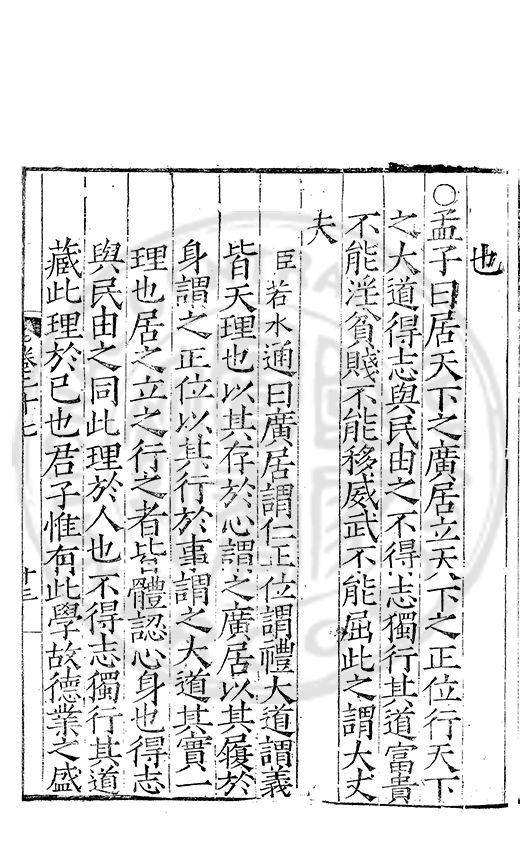 也
○孟子曰居天下之廣居立天下之正位行天下
之大道得志與民由之不得志獨行其道富貴
不能淫貧賤不能移威武不能屈此之謂大丈
夫
臣若水通曰廣居謂仁正位謂禮大道謂義
皆天理也以其存於心謂之廣居以其履於
身謂之正位以其行於事謂之大道其實一
理也居之立之行之者皆體認心身也得志
與民由之同此理於人也不得志獨行其道
藏此理於已也君子惟有此學故德業之盛
卷二十七
十三